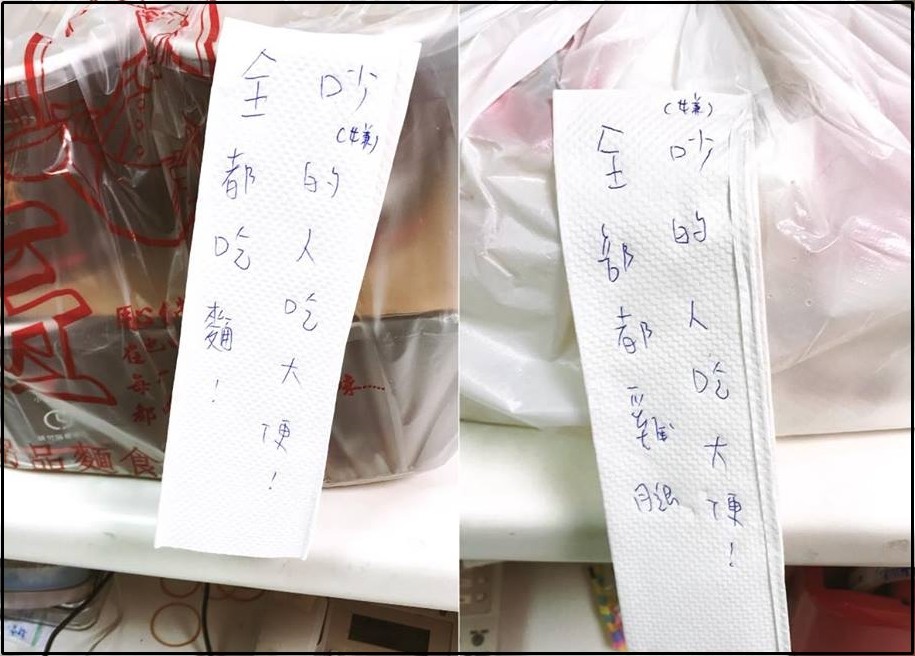 吵(嫌)的人吃大便!
全都吃麵!
(嫌)吵的人吃大便!
全部都雞腿
品麵食